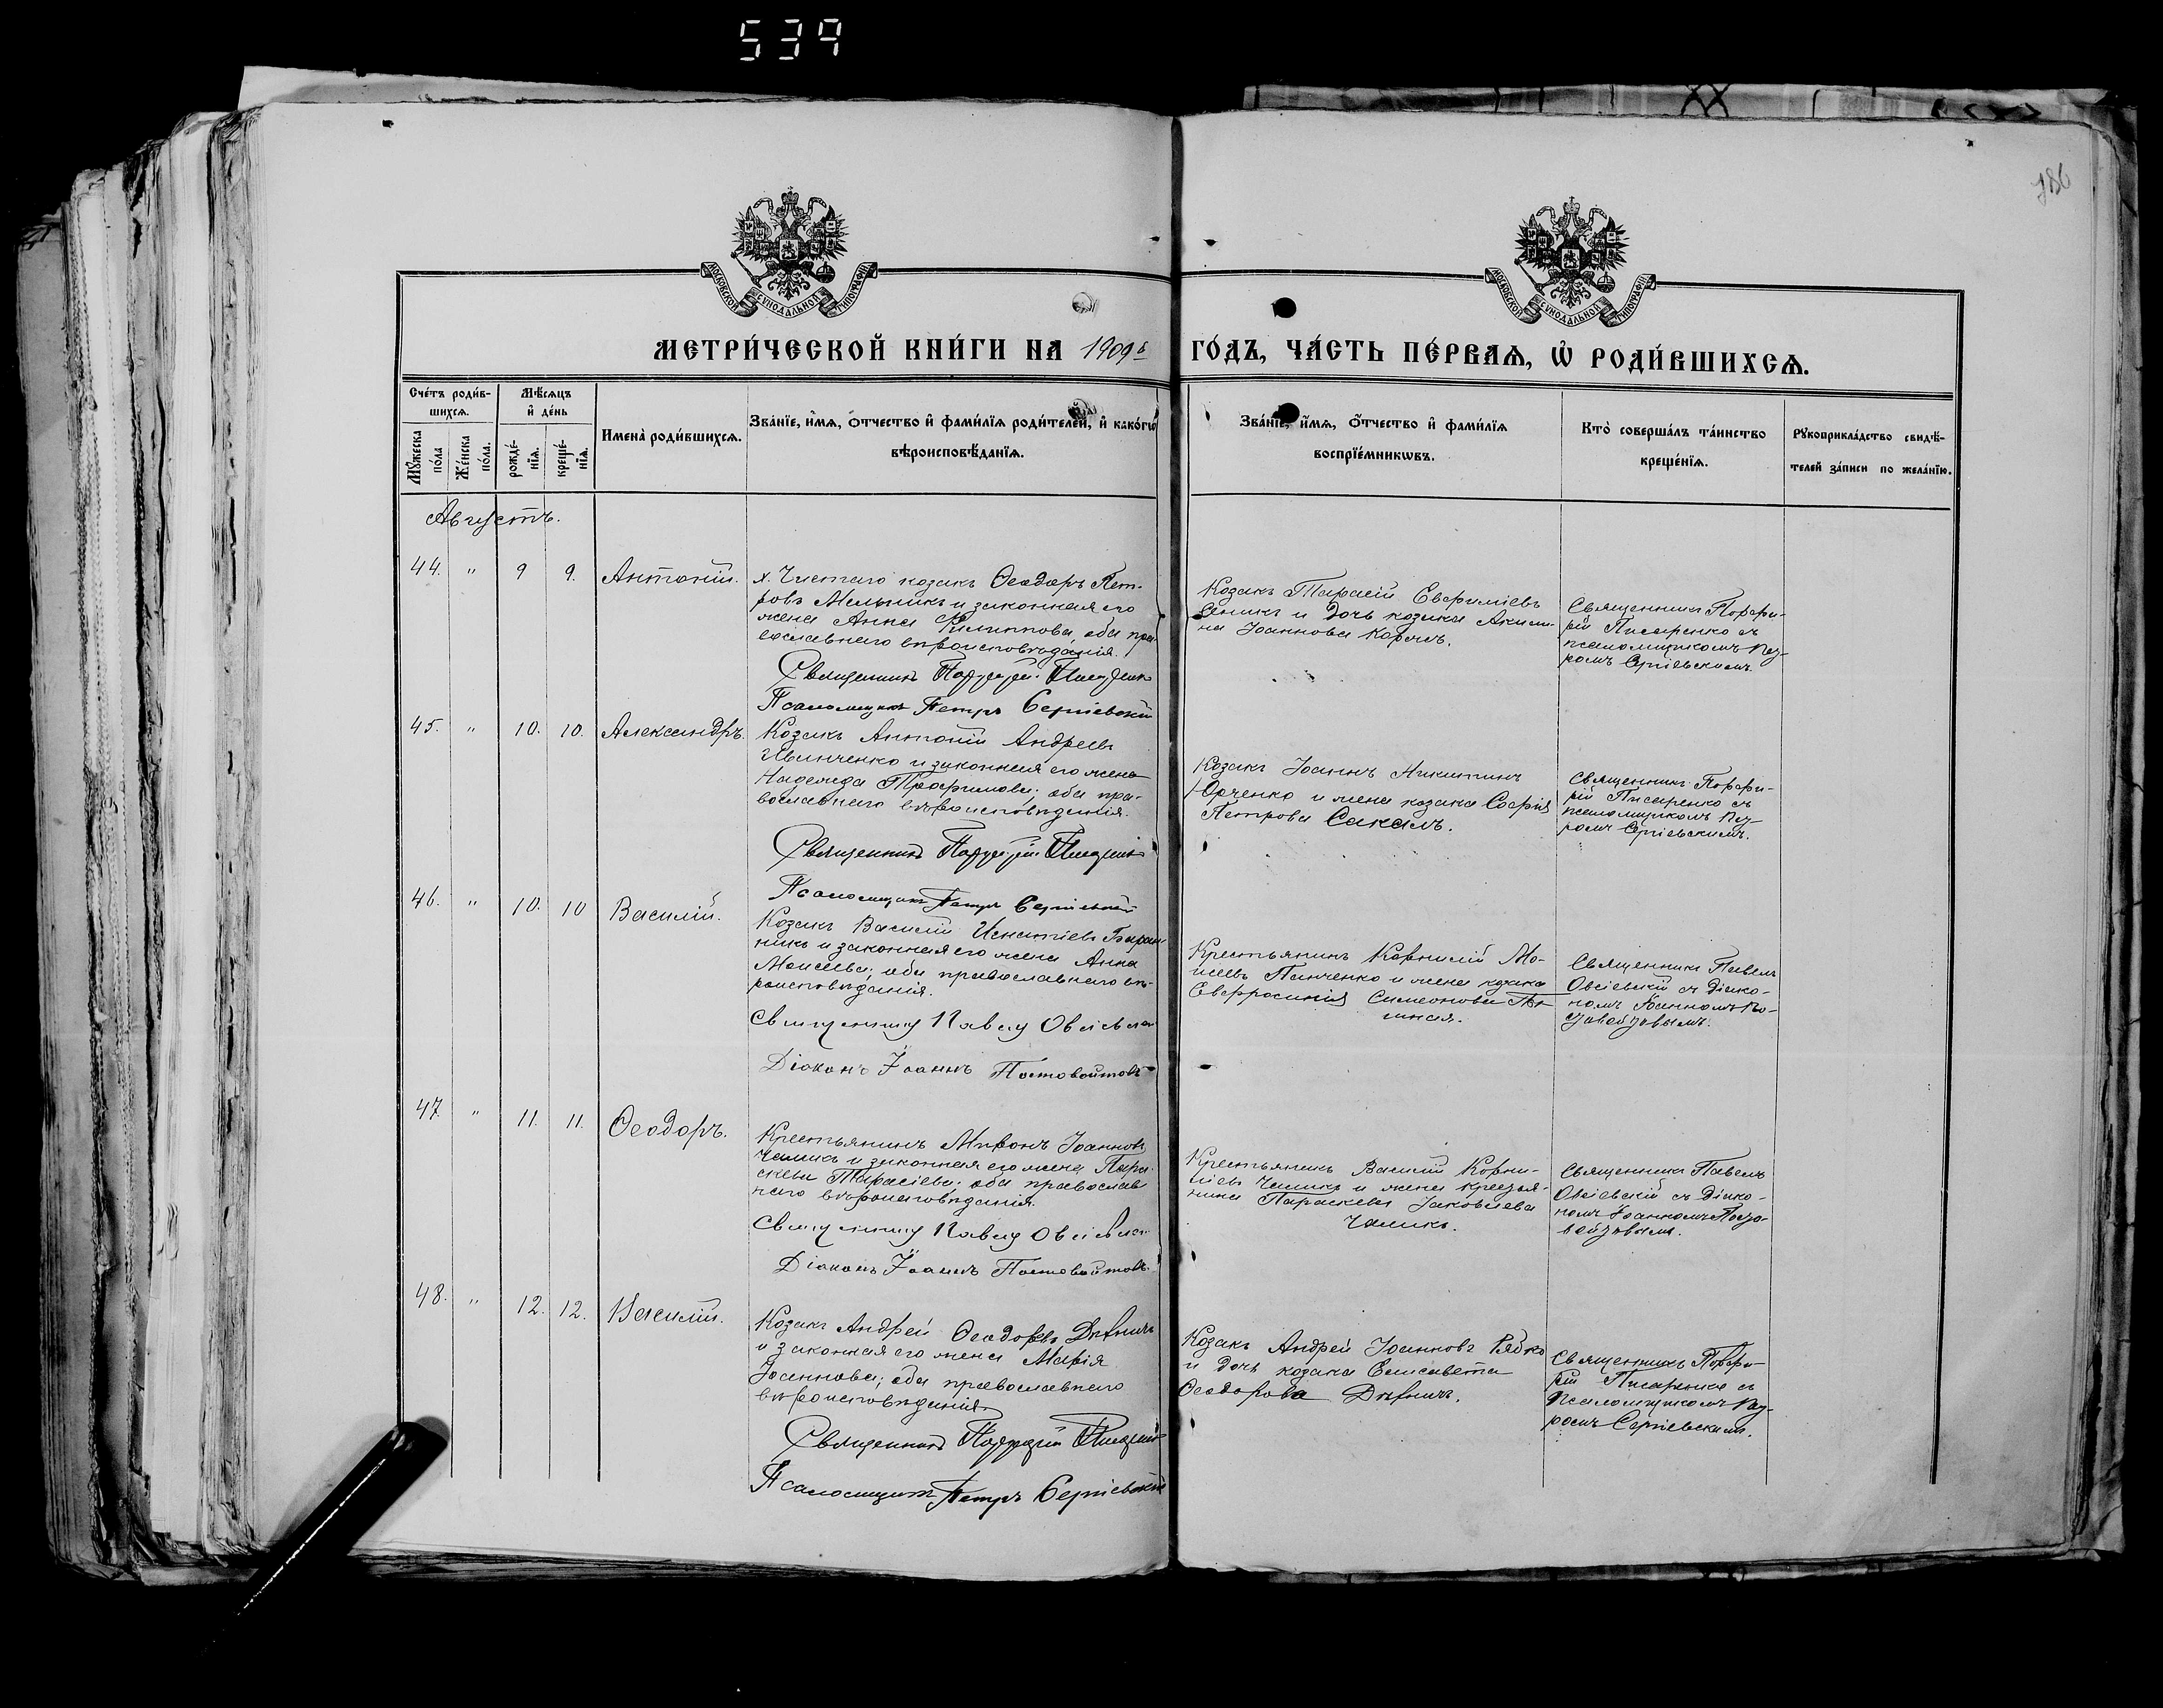 539
786
МОСКОВСКОЙ СѴНОДАЛЬНОЙ ТИПОГРАФІИ
МОСКОВСКОЙ СѴНОДАЛЬНОЙ ТИПОГРАФІИ
МЕТРИ́ЧЕСКОЙ КНИ́ГИ НА 1909й ГО́ДЪ, ЧА́СТЬ ПЕ́РВАѦ, Ѡ҆ РОДИ́ВШИХСѦ.
Сче́тъ роди́в-
шихсѧ.
Мѣ́сѧцъ
и҆ де́нь
Мꙋ́жеска
по́ла
Же́нска
по́ла.
рожде́-
нїѧ.
креще́-
нїѧ.
Имена̀ роди́вшихсѧ.
Зва́нїе, и҆́мѧ, ѻ҆́тчество и҆ фами́лїѧ роди́телей, и҆ како́гѡ
вѣроисповѣ́данїѧ.
Зва́нїе, и҆́мѧ, ѻ҆́тчество и҆ фами́лїѧ
воспрїе́мникѡвъ.
Кто̀ соверша́лъ та́инство
креще́нїѧ.
Рꙋкоприкла́дство свидѣ́-
телей за́писи по жела́нїю.
Августъ.
44. " 9 9. Антоній.
х. Чистаго козакъ Ѳеодоръ Пет-
ровъ Мельникъ и законная его
жена Анна Филиппова, оба пра-
вославнаго вѣроисповѣданія.
Священникъ Порфирій Писаренко
Псаломщикъ Петръ Сергіевскій
Козакъ Тарасій Евфиміевъ
и дочь козака Акили-
на Іоаннова
Священникъ Порфи-
рій Писаренко съ
псаломщикомъ Пет-
ромъ Сергіевскимъ.
45. " 10. 10. Александръ.
Козакъ Антоній Андреевъ
и законная его жена
Надежда Трофимова; оба пра-
вославнаго вѣроисповѣданія.
Священникъ Порфирій Писаренко
Псаломщикъ Петръ Сергіевскій
Козакъ Іоаннъ Никитинъ
Юрченко и жена козака Софія
Петрова Сакалъ.
Священникъ Порфи-
рій Писаренко съ
псаломщикомъ Пет-
ромъ Сергіевскимъ.
46. " 10. 10 Василій.
Козакъ Василій Игнатіевъ Баран-
никъ и законная его жена Анна
Моисеева; оба православнаго вѣ-
роисповѣданія.
Священникъ Павелъ Овсіевскій
Діаконъ Іоаннъ Постовойтовъ
Крестьянинъ Корнилій Мо-
исеевъ Панченко и жена козака
Евфросинія Симеонова
Священникъ Павелъ
Овсіевскій съ діако-
номъ Іоанномъ По-
стовойтовымъ.
47 " 11. 11. Ѳеодоръ.
Крестьянинъ Миронъ Іоанновъ
Чаликъ и законная его жена Пара-
скева Тарасіева; оба православ-
наго вѣроисповѣданія.
Священникъ Павелъ Овсіевскій
Діаконъ Іоаннъ Постовойтовъ.
Крестьянинъ Василій Корни-
ліевъ Чаликъ и жена крестья-
нина Параскева Іаковлева
Чаликъ.
Священникъ Павелъ
Овсіевскій съ діако-
номъ Іоанномъ Посто-
войтовымъ.
48. " 12. 12. Василій.
Козакъ Андрей Ѳеодоровъ
и законная его жена Марія
Іоаннова; оба православнаго
вѣроисповѣданія.
Священникъ Порфирій Писаренко
Псаломщикъ Петръ Сергіевскій
Козакъ Андрей Іоанновъ Рябко
и дочь козака Елисавета
Ѳеодорова
Священникъ Порфи-
рій Писаренко съ
псаломщикомъ Пет-
ромъ Сергіевскимъ.